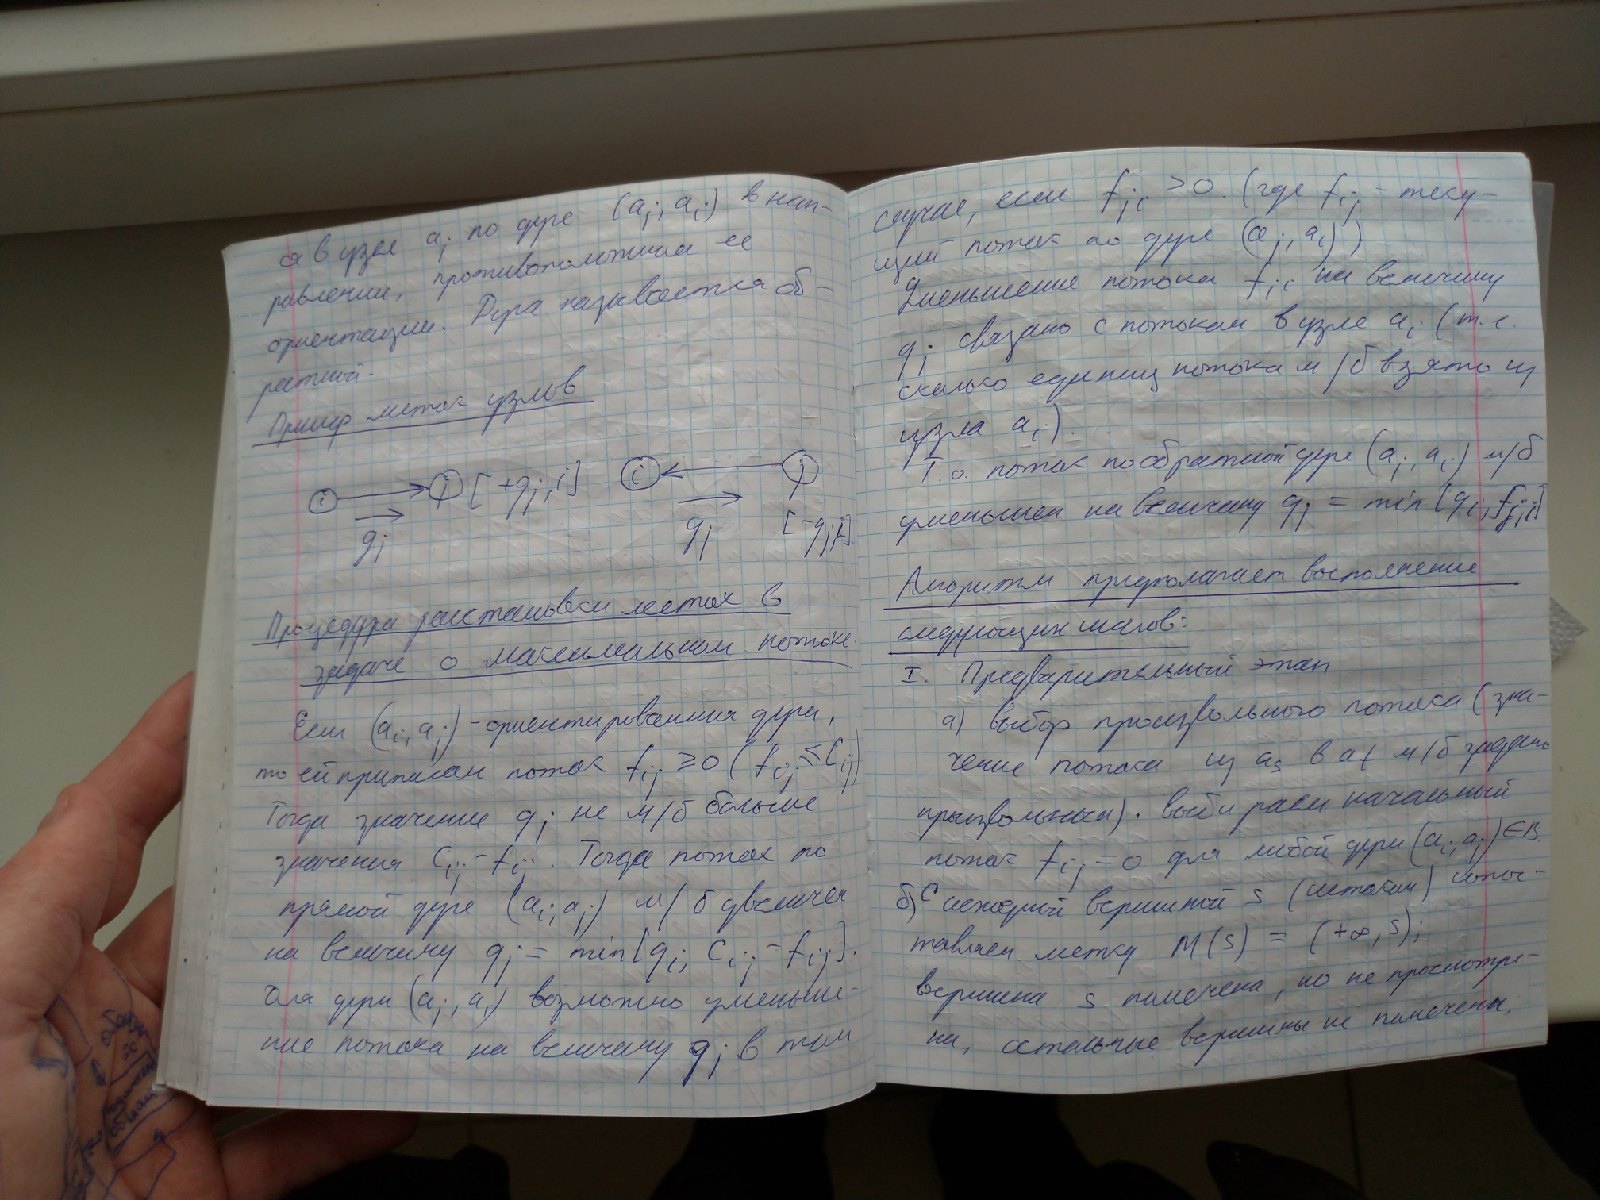 а в узле aj по дуре (aj, ai) в нап-
равлении, противоположном ее
ориентации. Дуга называется об-
ратной.
Пример меток узлов
i j [+qj, i] i j
qj qj [-qj, i]
Процедура расстановки меток в
задаче о максимальном потоке
Если (ai, aj) - ориентированная дуга,
то ей приписан поток fij ≥ 0 (fij ≤ Cij)
Тогда значение qj не м/б больше
значения Cij - fij. Тогда поток по
прямой дуге (ai, aj) м/б увеличен
на величину qj = min{qi, Cij - fij}.
Для дуги (aj, ai) возможно уменьше-
ние потока на величину qj в том
случае, если fji > 0. (где fij - теку-
щий поток по дуге (aj, ai))
Уменьшение потока fji на величину
qj связано с потоком в узле ai (т.е.
сколько единиц потока м/б взято из
узла ai).
Т.о. поток по обратной дуге (aj, ai) м/б
уменьшен на величину qj = min{qi, fji}
Алгоритм предполагает выполнение
следующих шагов:
I. Предварительный этап
а) выбор произвольного потока (зна-
чение потока из as в at м/б задано
произвольным). выбираем начальный
поток fij = 0 для любой дуги (ai, aj) ∈ B.
б) С исходной вершиной s (истоком) сопос-
тавляем метку M(s) = (+∞, s);
вершина s помечена, но не просмотре-
на, остальные вершины не помечены.